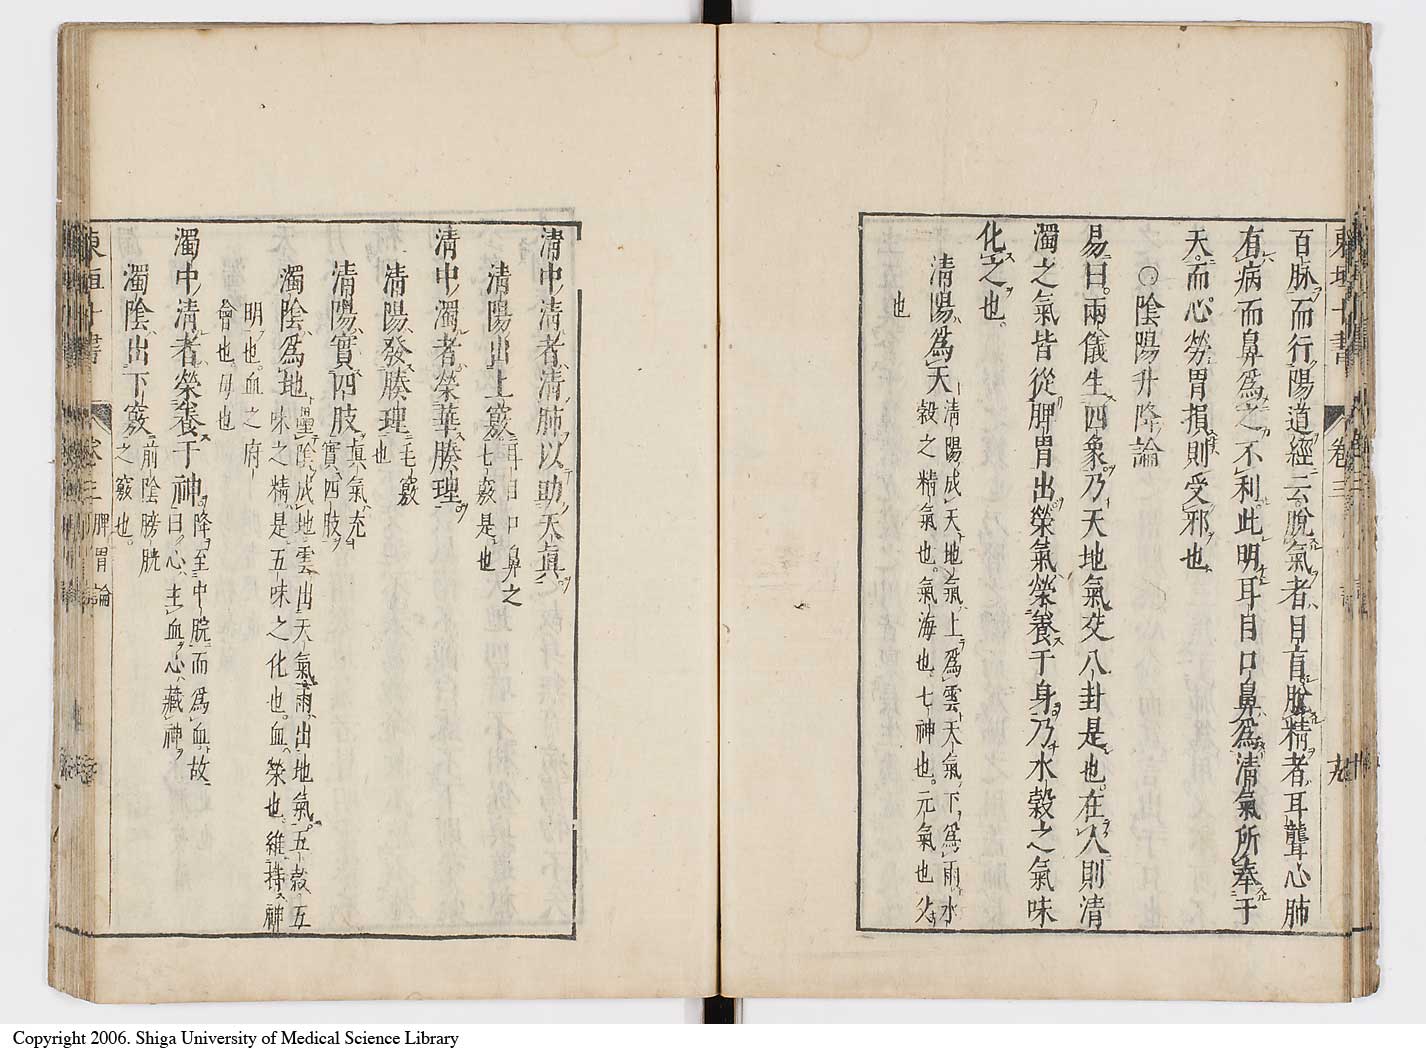 百脉而行陽道經云脫氣者目盲脫精者耳聾心肺
有病而鼻為之不利此明耳目口鼻為清氣所奉于
天而心勞胃損則受邪也
〇陰陽升降論
易曰兩儀生四象乃天地氣交八卦是也在人則清
濁之氣皆從脾胃出榮氣榮養于身乃水穀之氣味
化之也
清陽為天清陽成天地氣上為雲天氣下為雨水
穀之精氣也氣海也七神也元氣也父
也
清中清者清肺以助天真
清陽出上竅耳目口鼻之
七竅是也
清中濁者榮華腠理
清陽發腠理毛竅
也
清陽實四肢真氣充
實四肢
濁陰為地壘陰成地雲出天氣雨出地氣五穀五
味之精是五味之化也血榮也維持神
明也血之府
會也母也
濁中清者榮養于神降至中脘而為血故
曰心主血心藏神
濁陰出下竅前陰膀胱
之竅也
東垣十書
卷三
脾胃論
東垣十書
卷三
九
Copyright 2006. Shiga University of Medical Science Library